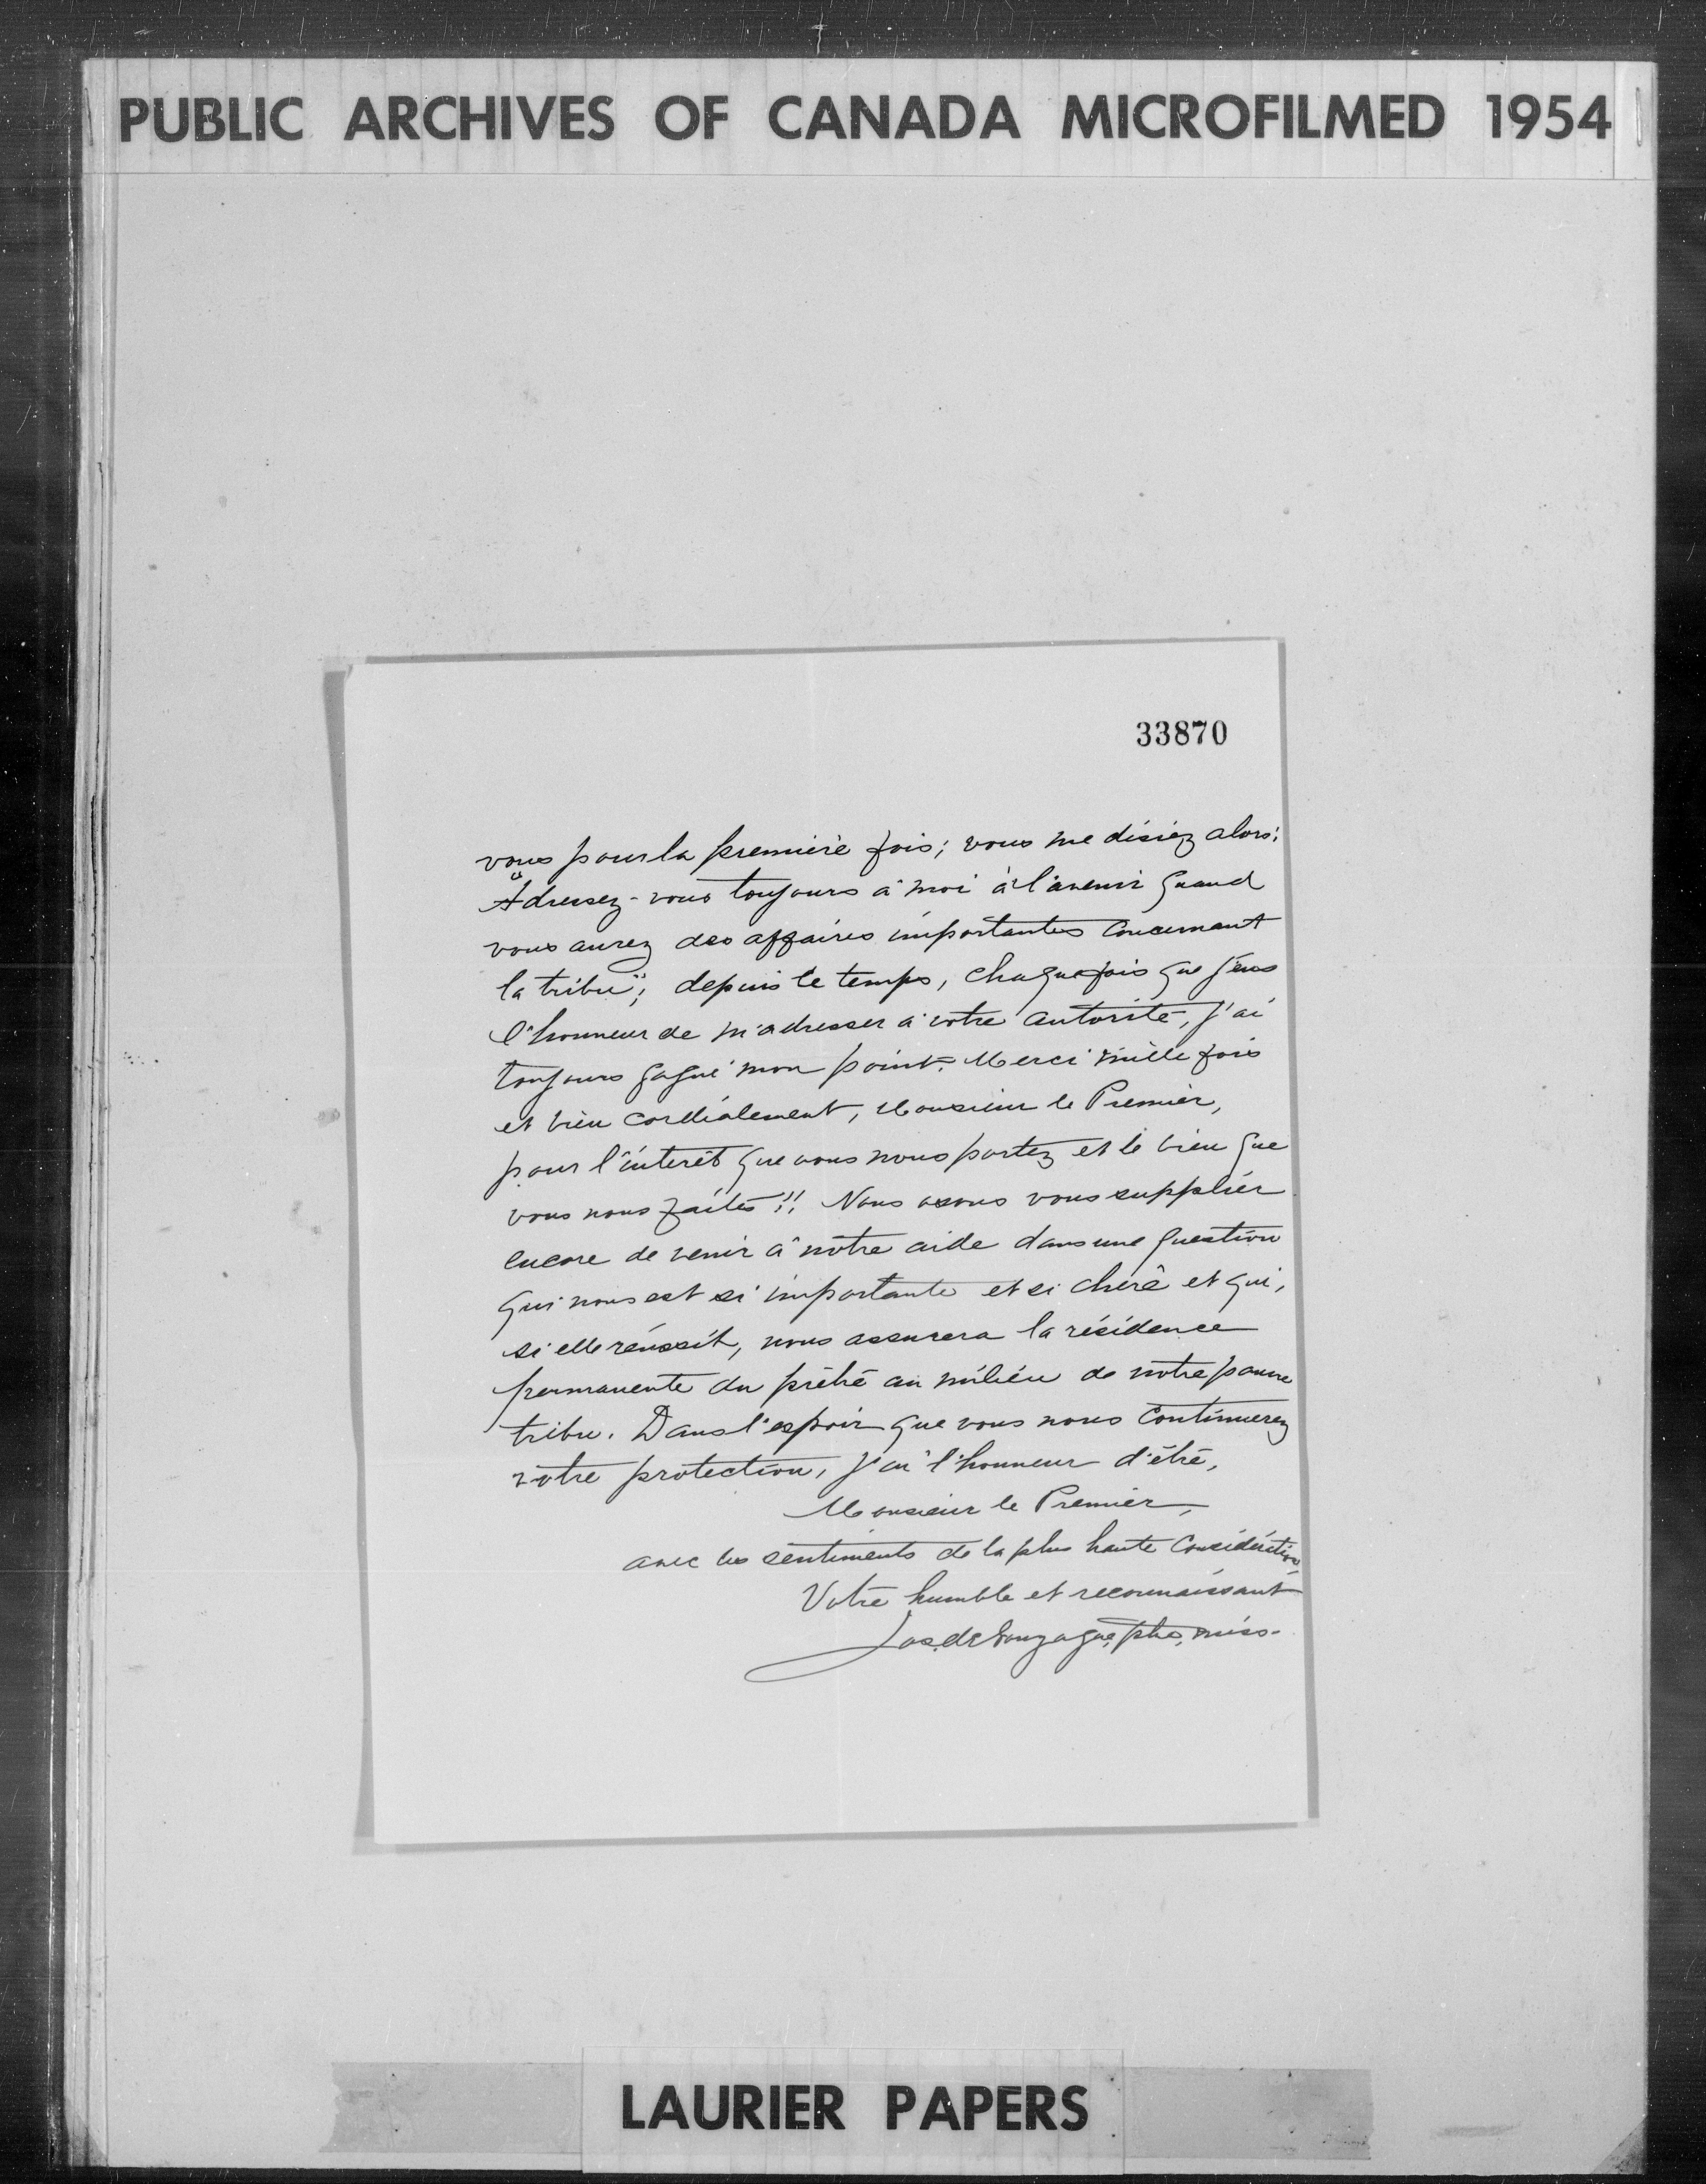 PUBLIC ARCHIVES OF CANADA MICROFILMED 1954
33870
vous pour la première fois; vous me disiez alors:
"Adressez-vous toujours à moi à l'avenir quand
vous aurez des affaires importantes concernant
la tribu"; depuis ce temps, chaque fois que j'eus
l'honneur de m'adresser à votre autorité, j'ai
toujours gagné mon point. Merci mille fois
et bien cordialement, Monsieur le Premier,
pour l'intérêt que vous nous portez et le bien que
vous nous faites!! Nous osons vous supplier
encore de venir à notre aide dans une question
qui nous est si importante et si chère et qui,
si elle réussit, nous assurera la résidence
permanente du prêtre au milieu de notre pauvre
tribu. Dans l'espoir que vous nous continuerez
votre protection, j'ai l'honneur d'être,
Monsieur le Premier,
avec les sentiments de la plus haute considération,
Votre humble et reconnaissant
Jos. de Gonzague, ptre, miss.
LAURIER PAPERS